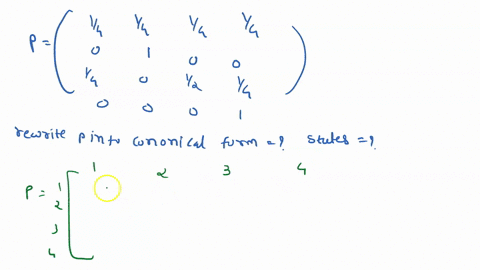 1/4 1/4 1/4 1/4
P = 0 1 0 0
1/4 0 1/2 1/4
0 0 0 1
rewrite p into cononical form = ? states = ?
1 2 3 4
P = 1
2
3
4